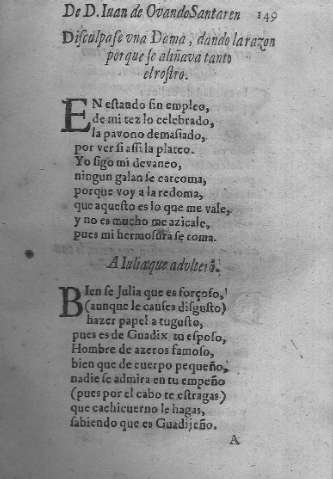 De D. Iuan de Ovando Santaren 149
Disculpase vna Dama, dando la razon
porque se aliñava tanto
el rostro.
EN estando sin empleo,
de mi tez lo celebrado,
la pavono demasiado,
por ver si assi la plateo.
Yo sigo mi devaneo,
ningun galan se carcoma,
porque voy a la redoma,
que aquesto es lo que me vale,
y no es mucho me azicale,
pues mi hermosura se toma.
A Iulia que adulterò.
BIen se Julia que es forçoso,
(aunque le causes disgusto)
hazer papel a tu gusto,
pues es de Guadix tu esposo,
Hombre de azeros famoso,
bien que de cuerpo pequeño,
nadie se admira en tu empeño
(pues por el cabo te estragas)
que cachicuerno le hagas,
sabiendo que es Guadijeño.
A